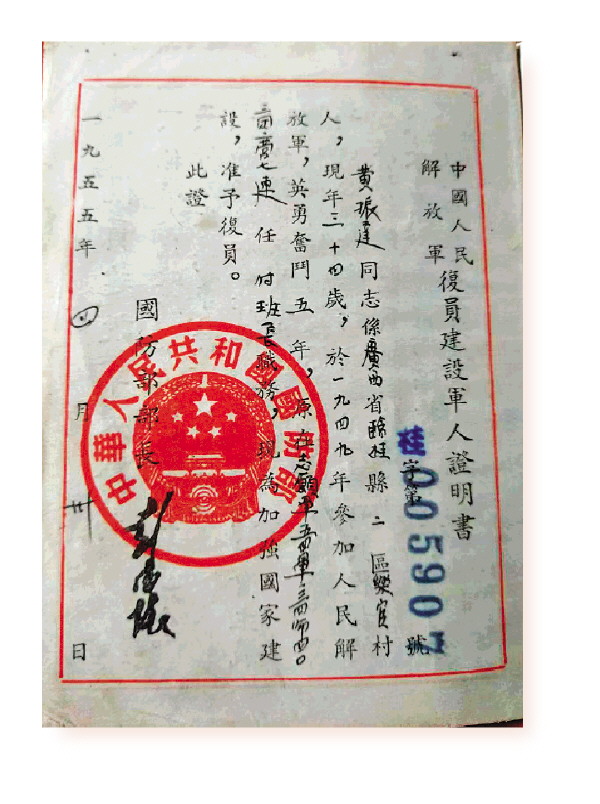 中國人民
解放軍
復員建設軍人證明書
桂字第005903號
黄振廷同志係廣西省臨桂縣二區樂官村
人，現年三十四歲，於一九四九年參加人民解
放軍，英勇奮鬥五年，原在志願軍
七連任付班長職務，現為加強國家建
設，准予復員。
此證
國防部部長
彭德懷
一九五五年四月卅日
中華人民共和國國防部